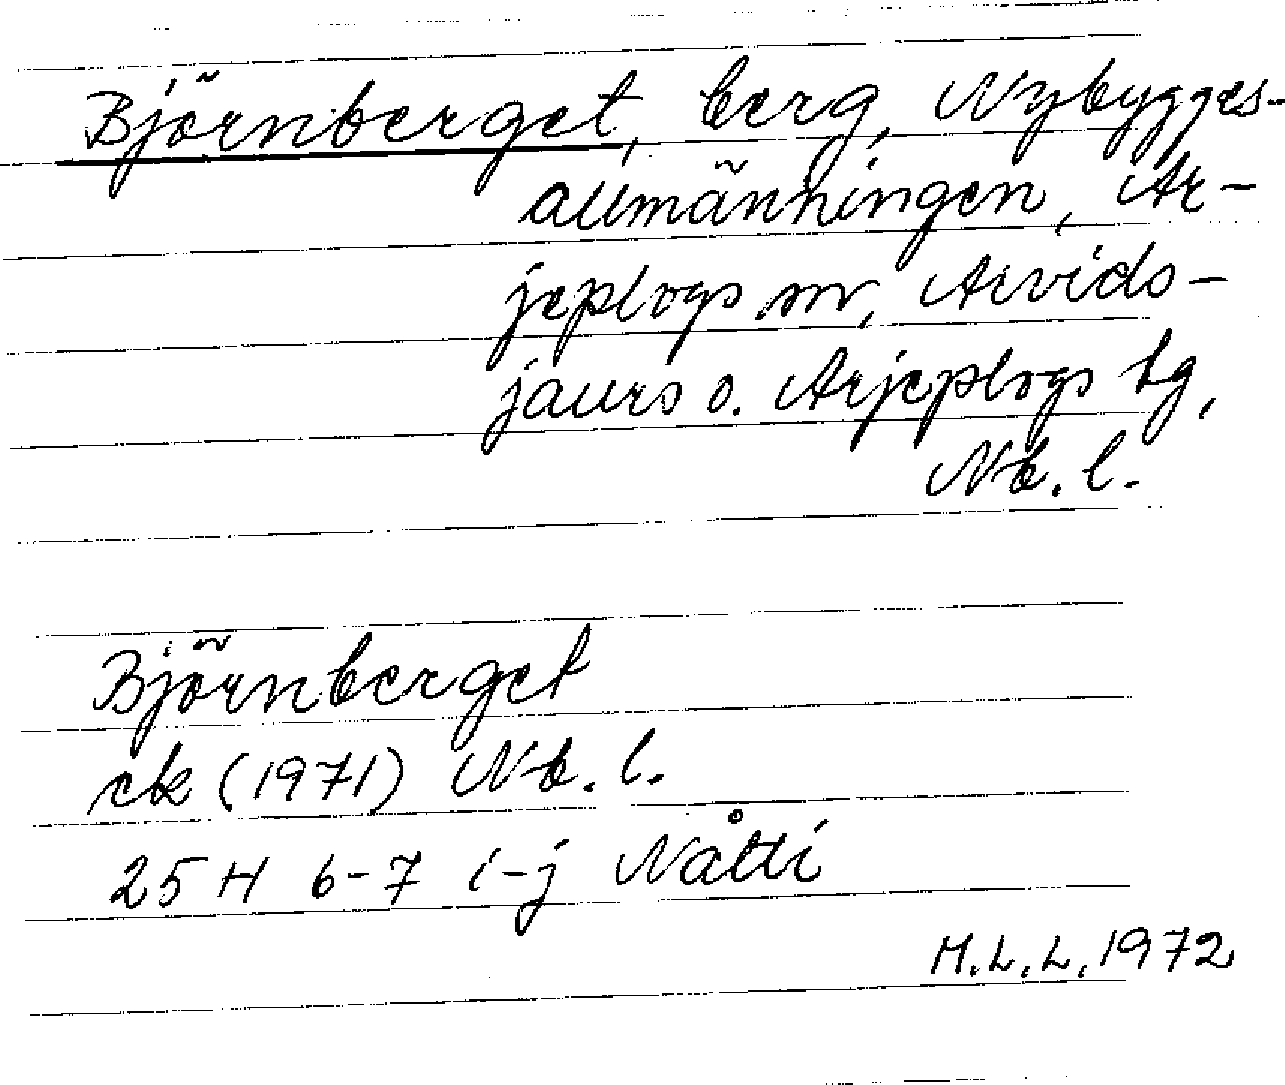 Björnberget, berg, Nybygges-
allmänningen, Ar-
jeplogs sn, Arvids-
jaurs o. Arjeplogs tg,
Nb. l.
Björnberget
ek (1971) Nb. l.
25 H 6-7 i-j Nåtti
M.L.L. 1972